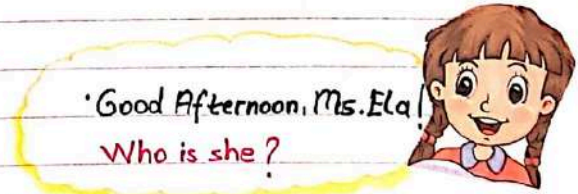 ·Good Afternoon, Ms.Ela!
Who is she?